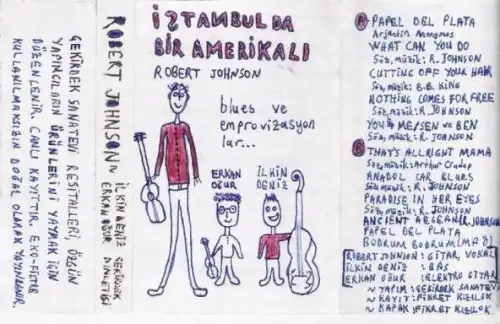 ÇEKİRDEK SANATEVİ RESİTALLERİ, ÖZGÜN
YAPIMCILARIN ÜRÜNLERİNİ YAYMAK İÇİN
DÜZENLENİR. CANLI KAYITTIR. EKO-FİLTRE
KULLANILMAKSIZIN DOĞAL OLARAK YAYINLANIR.
ROBERT JOHNSON
İLKİN DENİZ ÇEKİRDEK
ERKAN OĞUR DİNLETİSİ
İSTANBUL DA
BİR AMERİKALI
ROBERT JOHNSON
blues ve
emprovizasyon
lar...
ERKAN
OĞUR
İLKİN
DENİZ
A PAPEL DEL PLATA
Arjantin Anonymos
WHAT CAN YOU DO
Söz, müzik: R. JOHNSON
CUTTING OFF YOUR HAIR
Söz, müzik: B.B. KING
NOTHING COMES FOR FREE
Söz, müzik: R. JOHNSON
YOU & ME/SEN VE BEN
Söz, müzik: R. JOHNSON
B THAT'S ALLRIGHT MAMA
Söz, müzik: Arthur Crudup
ANADOL CAR BLUES
Söz, müzik: R. JOHNSON
PARADISE IN HER EYES
Söz, müzik: R. JOHNSON
ANCIENT AEGEAN R. JOHNSON
PAPEL DEL PLATA
BODRUM BODRUM (MFÖ)
ROBERT JOHNSON: GİTAR, VOKAL
İLKİN DENİZ : BAS
ERKAN OĞUR : ELEKTRO GİTAR
~ YAPIM: ÇEKİRDEK SANATEVİ
~ KAYIT: FİKRET KIZILOK
~ KAPAK: FİKRET KIZILOK